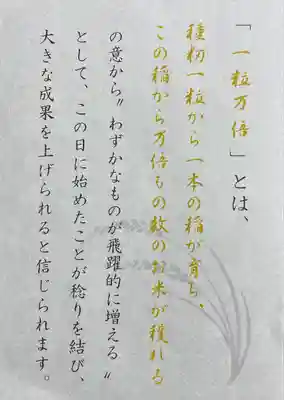 「一粒万倍」とは、
種籾一粒から一本の稲が育ち、
この稲から万倍もの数のお米が穫れる
の意から〝わずかなものが飛躍的に増える〟
として、この日に始めたことが稔りを結び、
大きな成果を上げられると信じられます。